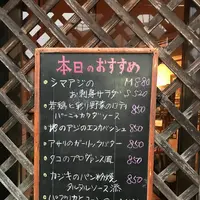 本日のおすすめ
・シマアジの M880
お刺身サラダ S520
・若鶏と彩り野菜のロティ
バーニャカウダソース 850
のアジのエスカベッシュ 850
・アサリのガーリックバター 850
・タコのプロヴァンス風 850
・カジキのパン粉焼
タルタルソース添 850
850